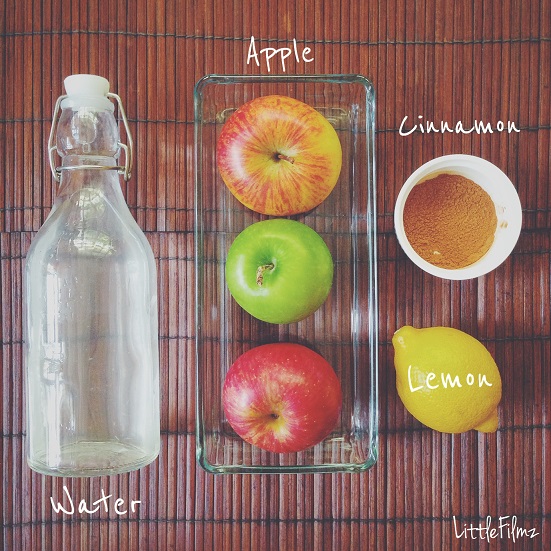 Apple
Cinnamon
Lemon
Water
LittleFilmz